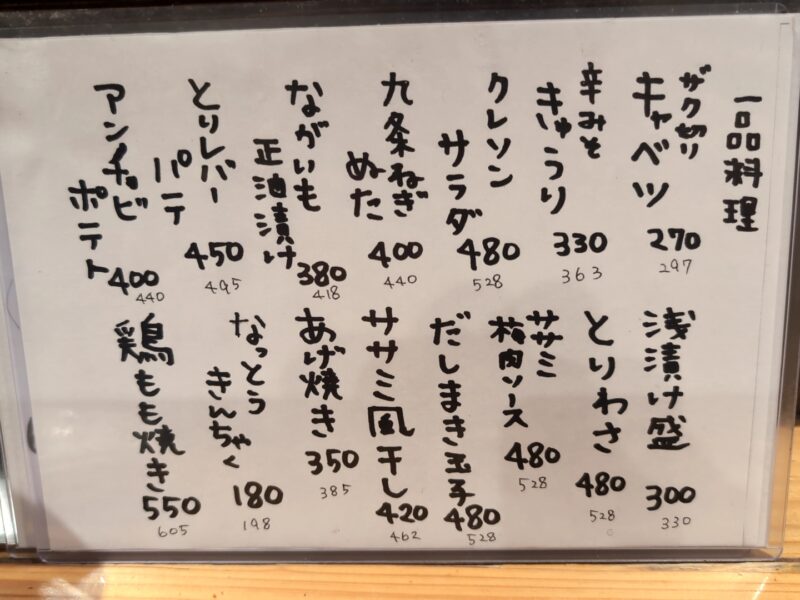 一品料理
ザク切り
キャベツ
270
297
辛みそ
きゅうり
330
363
クレソン
サラダ
480
528
九条ねぎ
ぬた
400
440
ながいも
正油漬け
380
418
とりレバー
パテ
450
495
アンチョビ
ポテト
400
440
浅漬け盛
300
330
とりわさ
480
528
ササミ
梅肉ソース
480
528
だしまき玉子
480
528
ササミ風干し
420
462
あげ焼き
350
385
なっとう
きんちゃく
180
198
鶏もも焼き
550
605